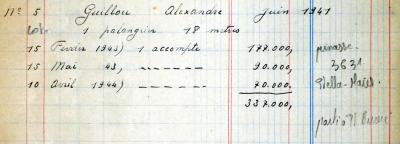 N° 5 Guillou Alexandre Juin 1941
1 palangrier 18 metres
15 Fevrier 1943) 1 accompte 177.000,
15 Mai 43, — — — — — — 90.000, pinasse
10 Avril 1944) — — — — — — 70.000, 3631
337.000, Stella-Maris
parti à